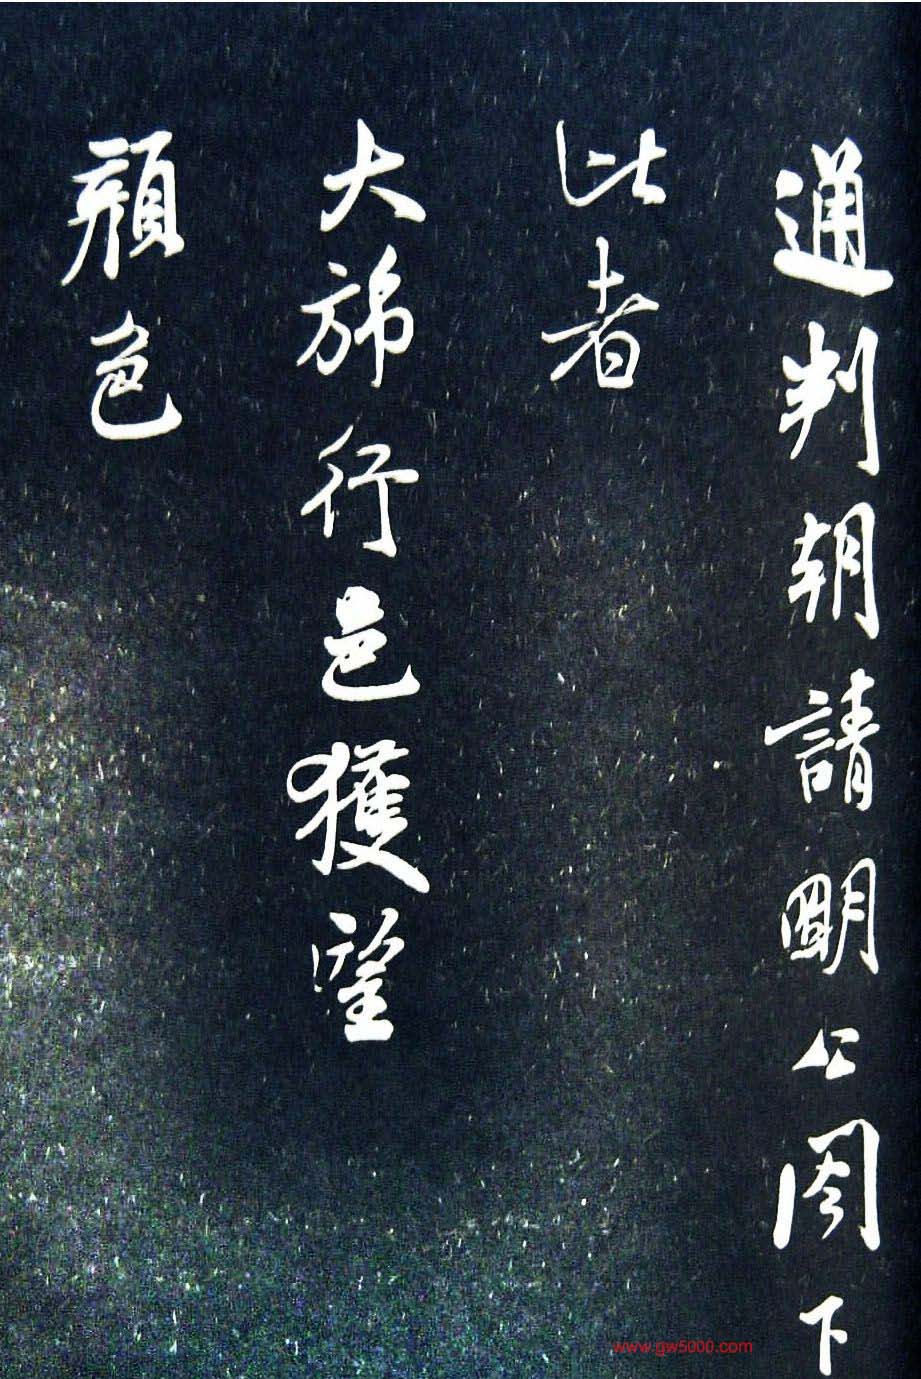 通判朝請明公閣下
比者
大旆行色獲望
顏色
www.gw5000.com